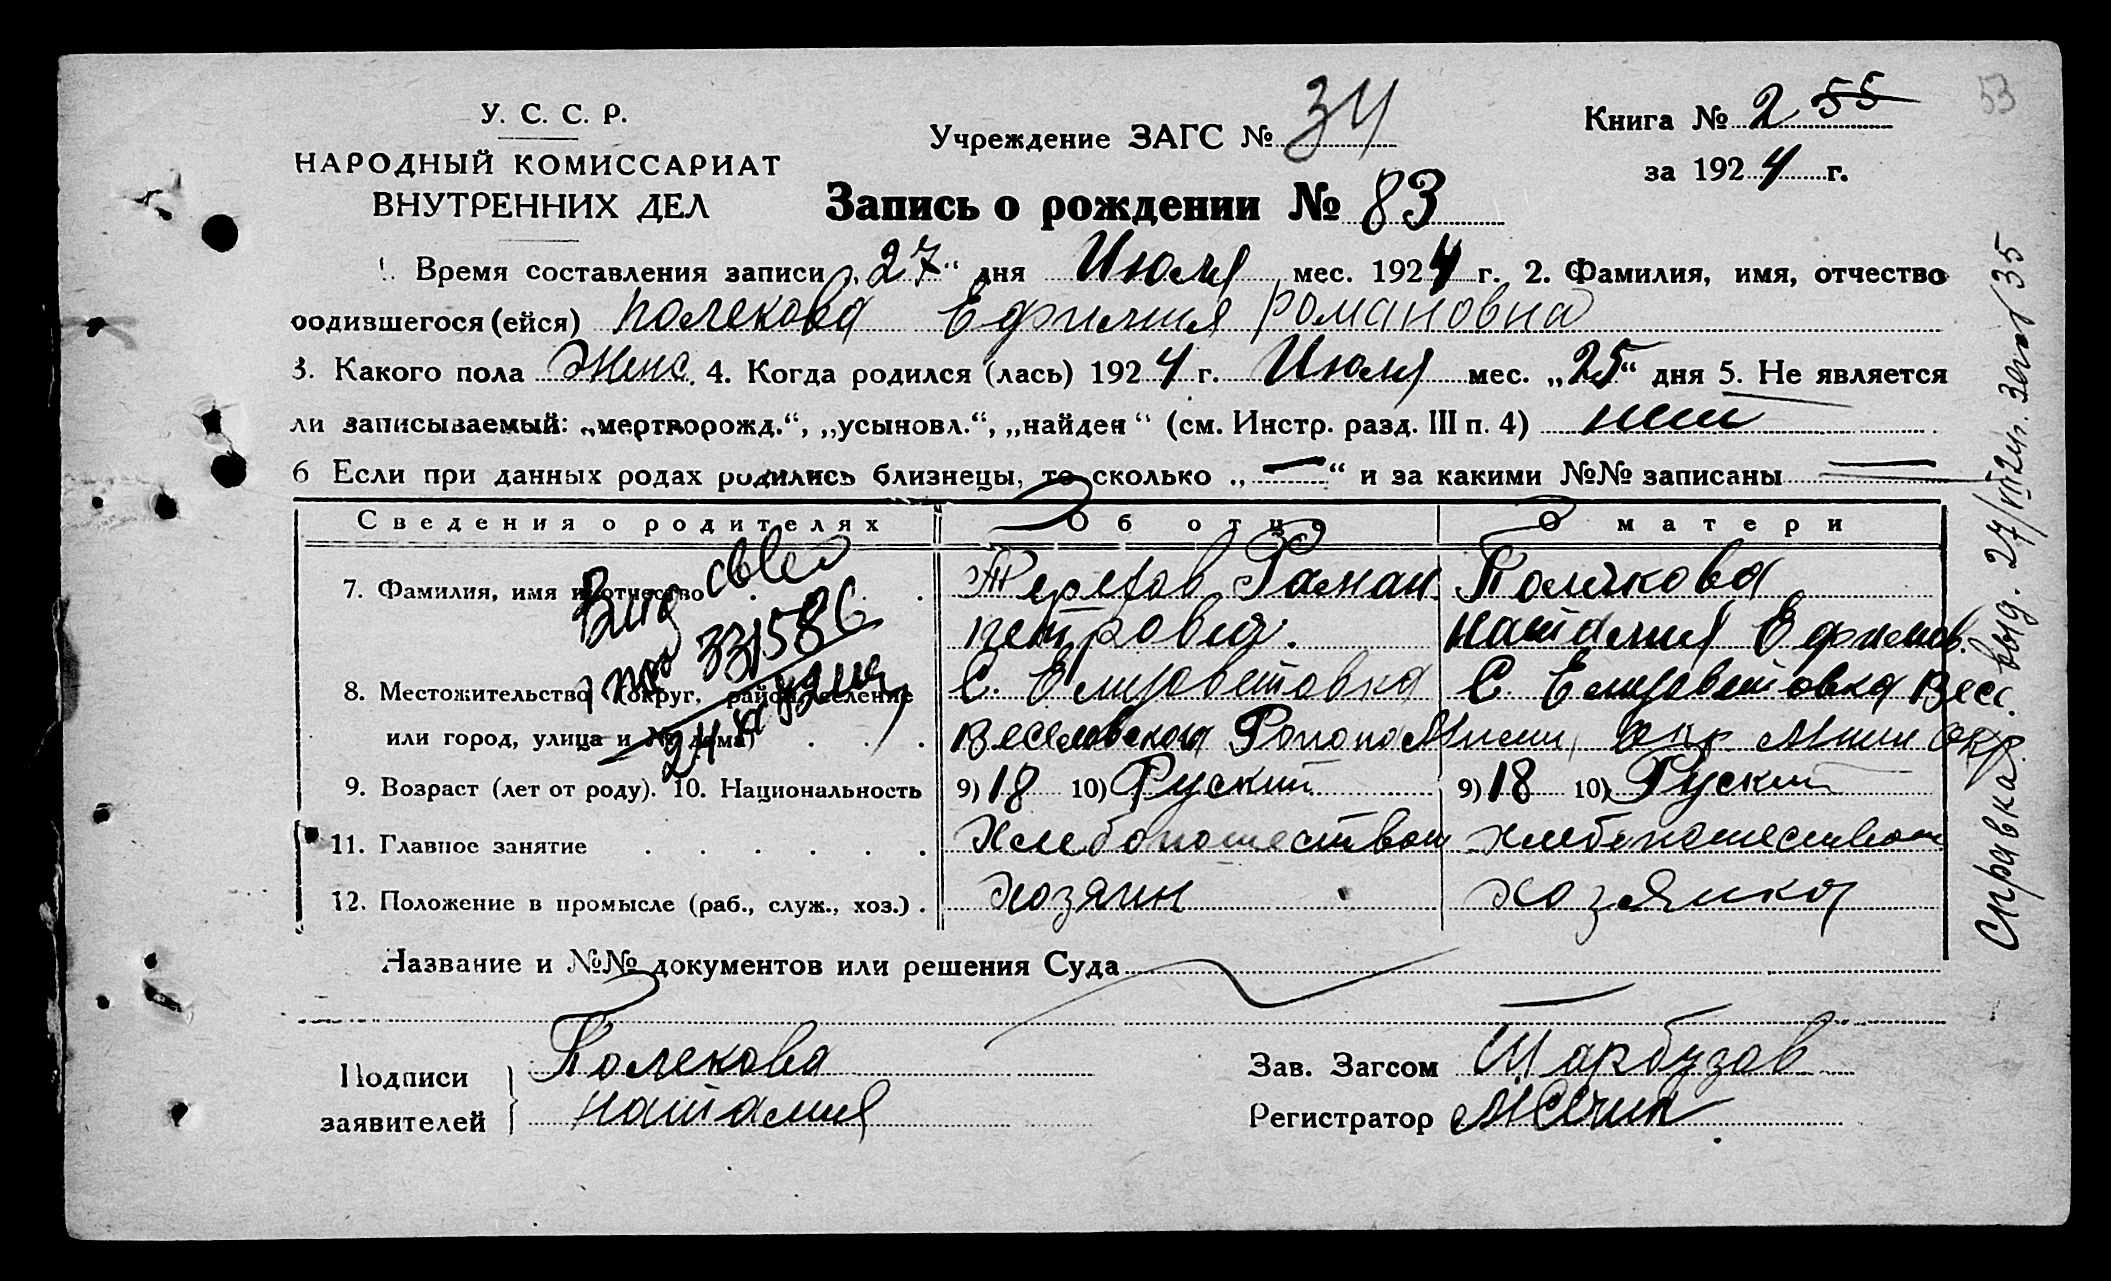 У. С. С. Р.
НАРОДНЫЙ КОМИССАРИАТ
ВНУТРЕННИХ ДЕЛ
Учреждение ЗАГС № 34
Книга № 2 55
53
за 1924 г.
Запись о рождении № 83
1. Время составления записи „27“ дня Июля мес. 1924 г. 2. Фамилия, имя, отчество
родившегося (ейся) Полекова Ефимия Романовна
3. Какого пола Женс. 4. Когда родился (лась) 1924 г. Июля мес. „25“ дня 5. Не является
ли записываемый: „мертворожд.“, „усыновл.“, „найден“ (см. Инстр. разд. III п. 4) нет
6 Если при данных родах родились близнецы, то сколько „—“ и за какими №№ записаны —
Сведения о родителях Об отце О матери
7. Фамилия, имя и отчество Роман Полякова
Петрович. Наталия Ефимов.
8. Местожительство (округ, район, селение С. Елизаветовка С. Елизаветовка Весс.
или город, улица и № дома) Веселовского
Выд
331586
24
9. Возраст (лет от роду). 10. Национальность 9) 18 10) Руский 9) 18 10) Руский
11. Главное занятие Хлебопашеством хлебопашеством
12. Положение в промысле (раб., служ., хоз.) хозяин хозяйка
Название и №№ документов или решения Суда
Подписи заявителей Полекова
Наталия
Зав. Загсом Тарбузов
Регистратор
Справка выд. 27/VII 24г.